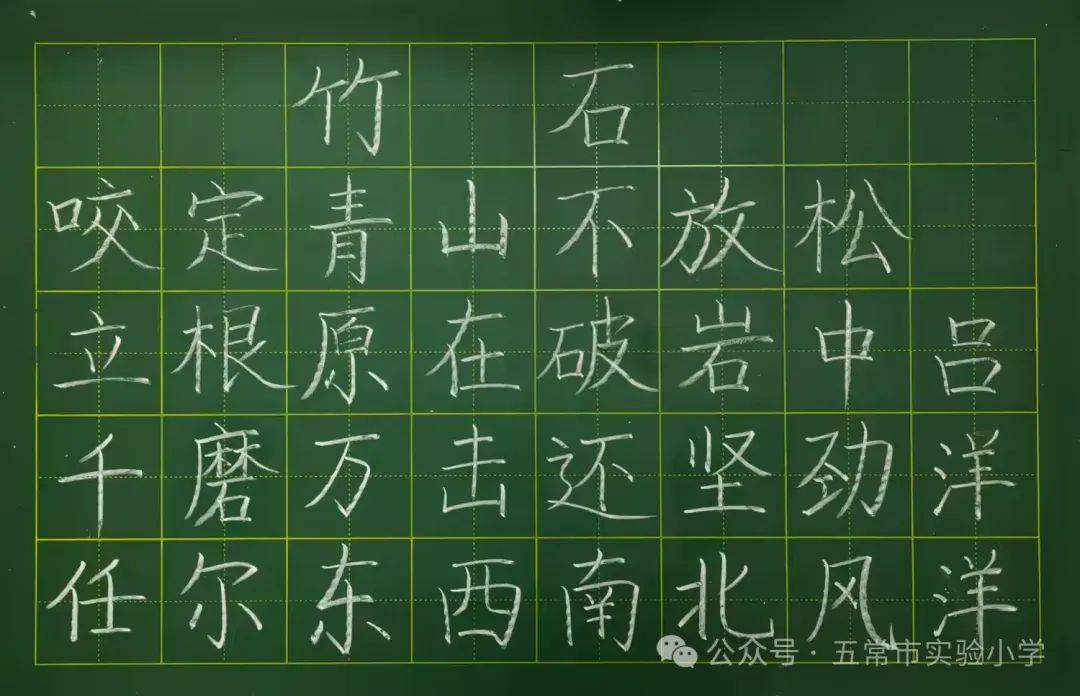 竹石
咬定青山不放松
立根原在破岩中 吕
千磨万击还坚劲 洋
任尔东西南北风 洋
公众号·五常市实验小学